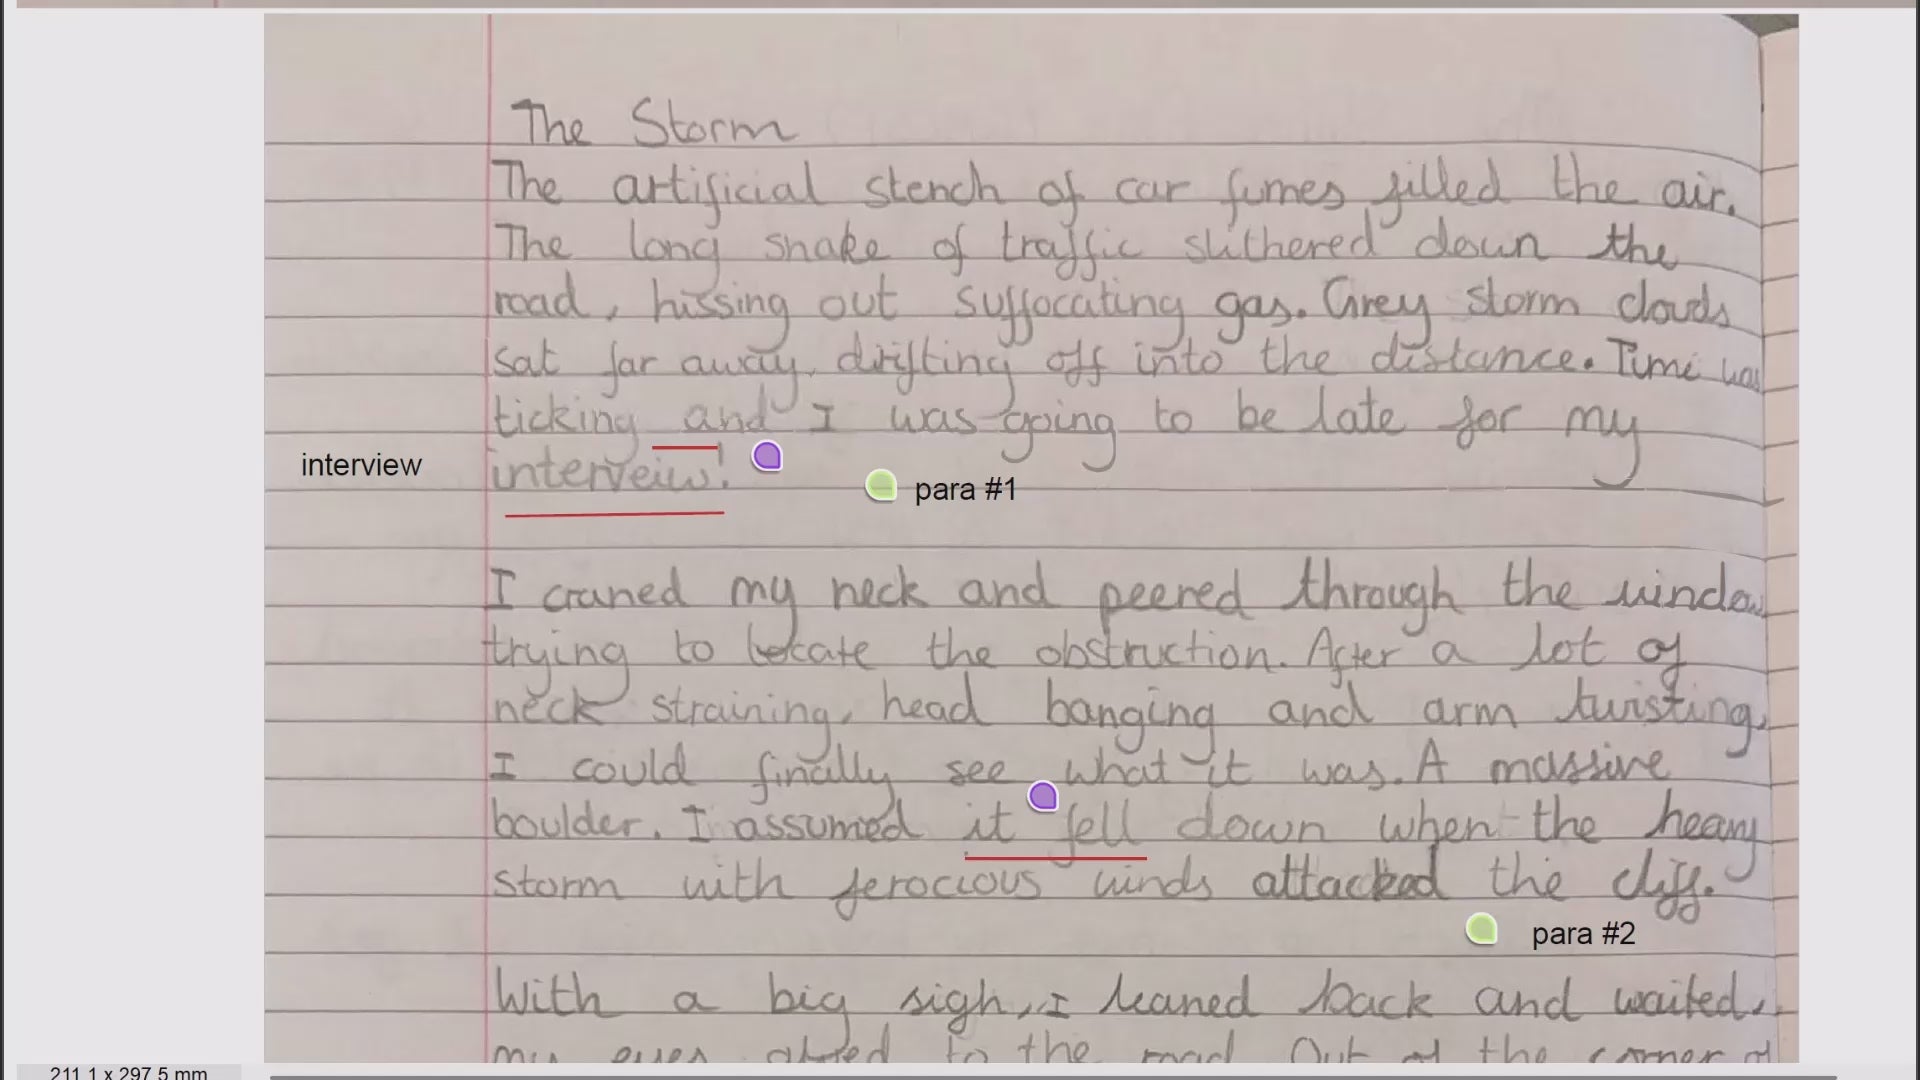 The Storm
The artificial stench of car fumes filled the air.
The long snake of traffic slithered down the
road, hissing out suffocating gas. Grey storm clouds
sat far away, drifting off into the distance. Time was
ticking and I was going to be late for my
interview
interveiw!
para #1
I craned my neck and peered through the window
trying to locate the obstruction. After a lot of
neck straining, head banging and arm twisting,
I could finally see what it was. A massive
boulder. I assumed it fell down when the heavy
storm with ferocious winds attacked the cliff.
para #2
With a big sigh, I leaned back and waited,
my eyes to the road. Out of the corner of
211.1 x 297.5 mm